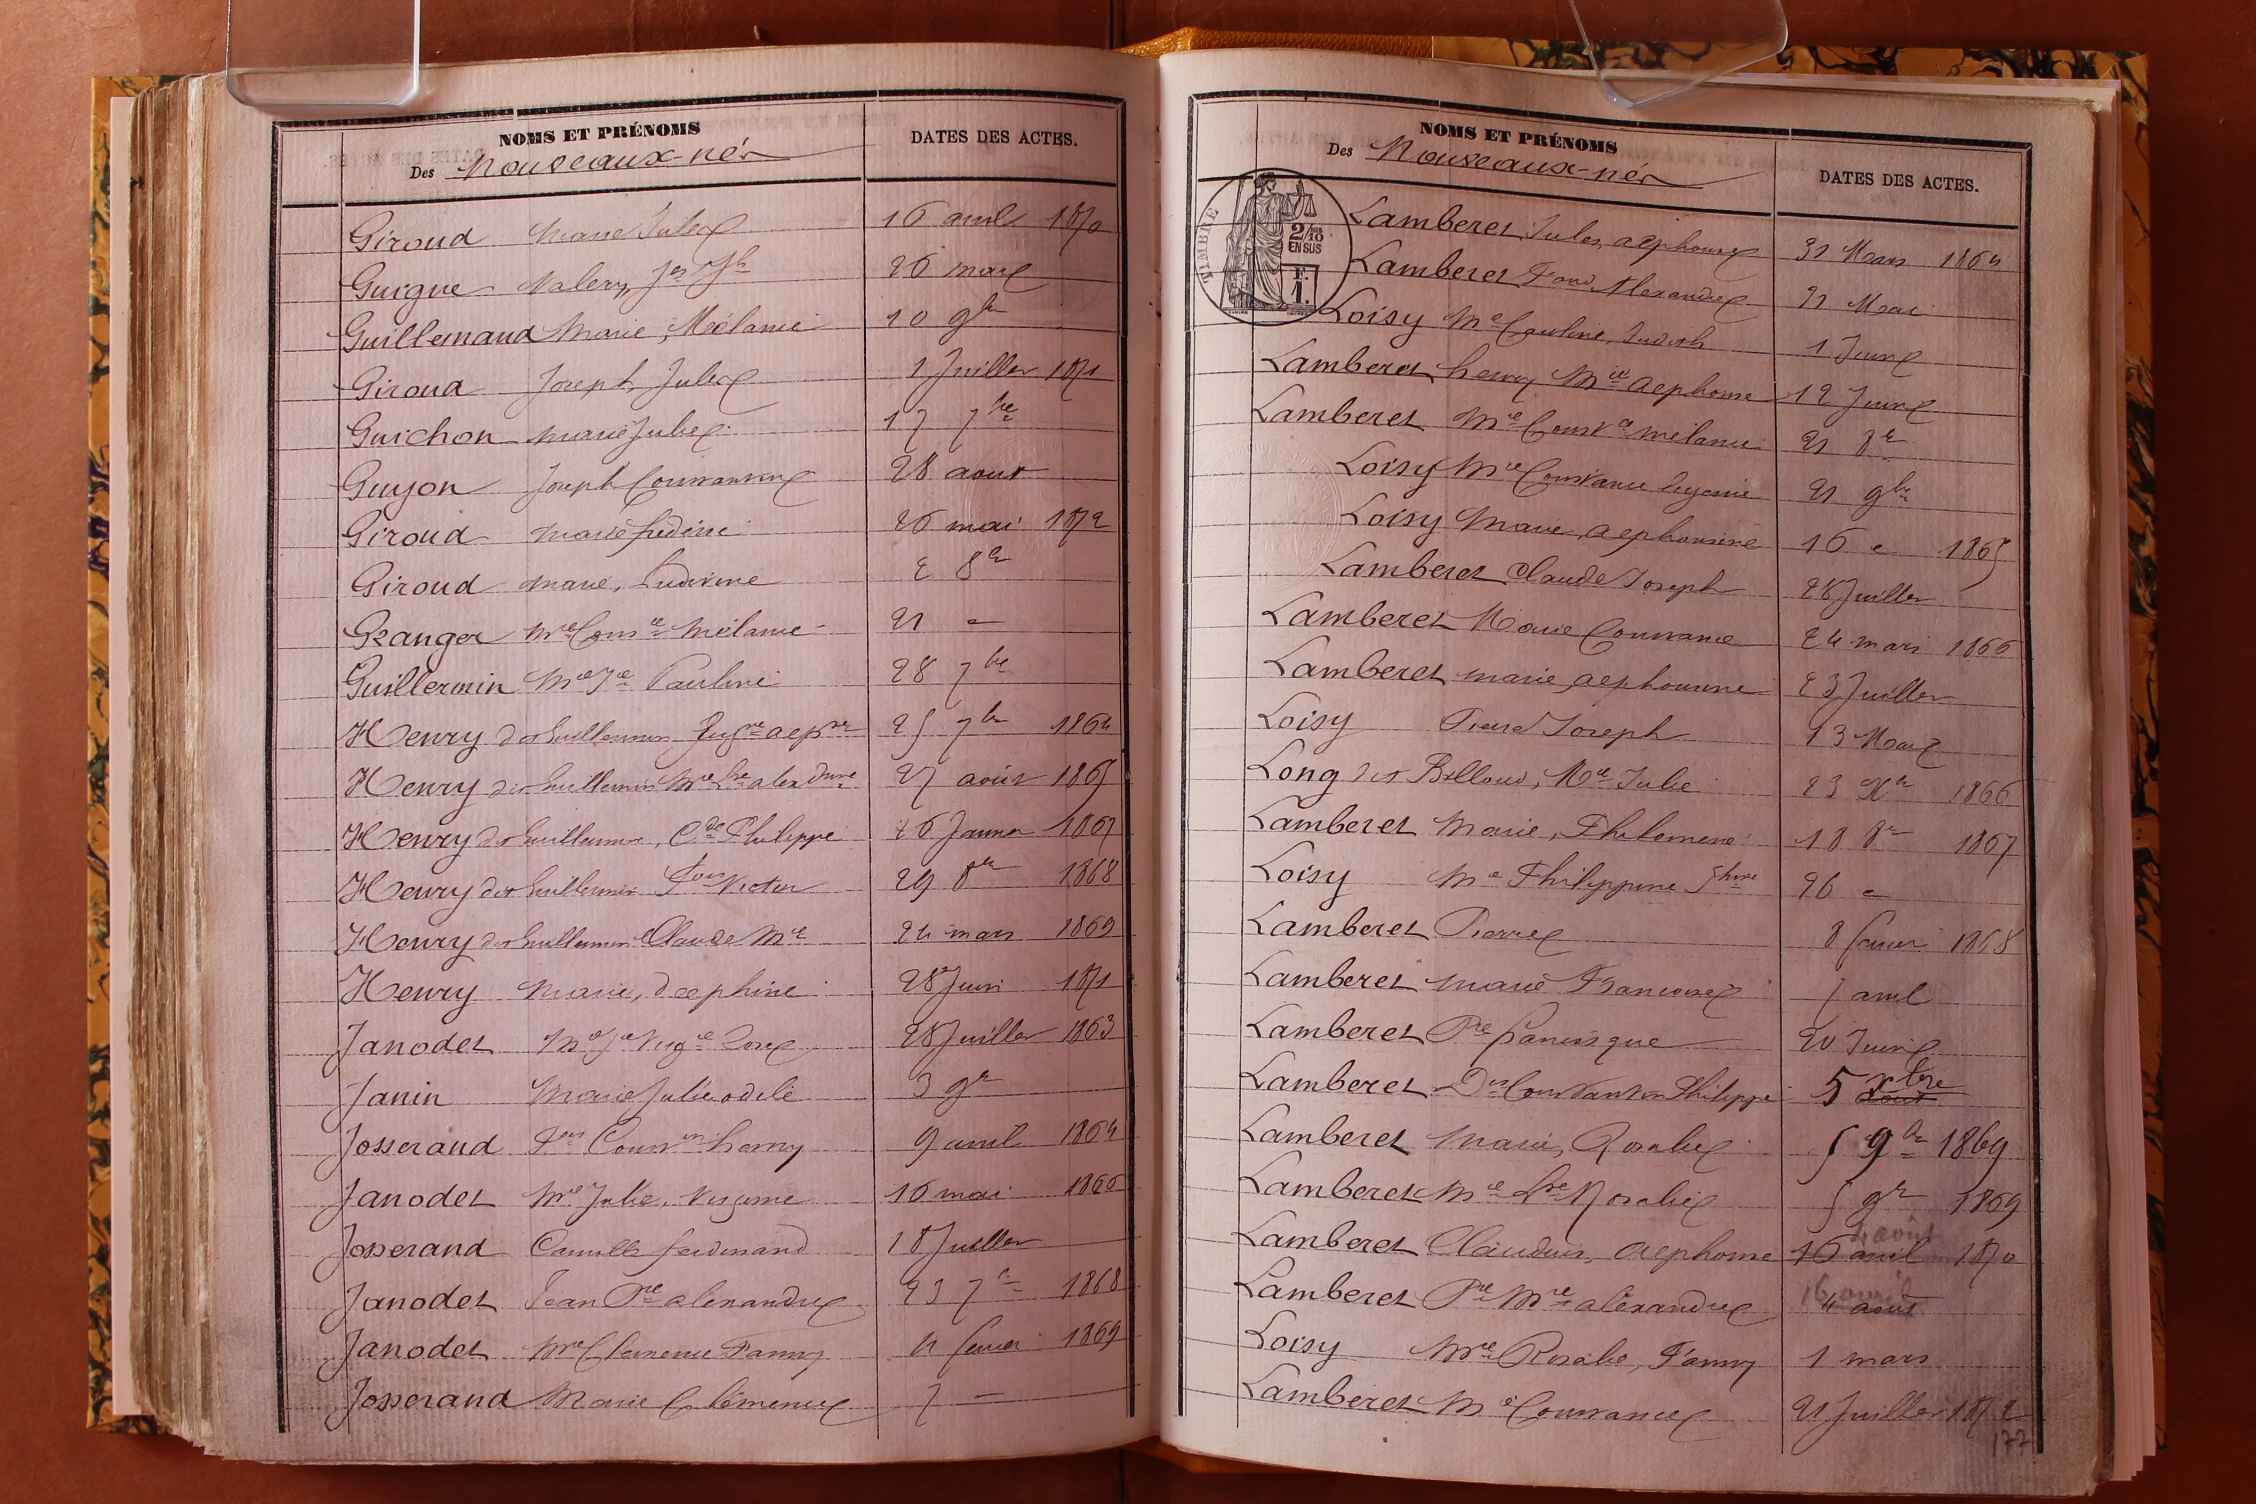 NOMS ET PRÉNOMS
Des Nouveaux-nés
DATES DES ACTES.
Giroud Marie Julie 16 avril 1870
Gurgue Valery, Jes Jph 26 mai
Guillemaud Marie, Mélanie 10 9bre
Giroud Joseph, Jules 1 Juillet 1871
Guichon Marie Julie 17 7bre
Guyon Joseph Constantin 28 aout
Giroud Marie 26 mai 1872
Giroud marie, Ludivine 2 8re
Granger Mie Conse Mélanie 21 -
Guillermin Mie Jne Pauline 28 7bre
Henry dit Guillermin 25 7bre 1864
Henry dit Guillermin Mie 27 août 1865
Henry dit Guillermin, Cde Philippe 26 Janvier 1867
Henry dit Guillermin Victor 29 8re 1868
Henry dit Guillermin Claude Mie 24 mars 1869
Henry Marie, Delphine 28 Juin 1871
Janodet Mie Jne Virgie Rose 28 Juillet 1863
Janin Marie Julie odile 3 9re
Josserand henry 9 avril 1864
Janodet Mie Julie, Virginie 16 mai 1866
Josserand Camille ferdinand 18 Juillet
Janodet Jean Pre alexandre 23 7re 1868
Janodet Mie Clemence Fanny 4 fevrier 1869
Josserand Marie Clémence 7 -
NOMS ET PRÉNOMS
Des Nouveaux-nés
DATES DES ACTES.
TIMBRE
2/10
EN SUS
F.
1.
Lamberet Jules, alphonse 31 Mars 1864
Lamberet Alexandre 21 Mai
Loisy Me Pauline, Judith 1 Juin
Lamberet henry Mie alphonse 12 Juin
Lamberet Mie Constce mélanie 21 8re
Loisy Mie Constance 21 9bre
Loisy Marie alphonsine 16 - 1865
Lamberet Claude Joseph 28 Juillet
Lamberet Marie Constance 24 mars 1866
Lamberet marie alphonsine 23 Juillet
Loisy Pierre Joseph 13 Mai
Long dit Billoud, Mie Julie 23 Xre 1866
Lamberet Marie, Philomene 18 8re 1867
Loisy Me Philippine 26 -
Lamberet Pierre 8 fevrier 1868
Lamberet Marie Francoise 7 avril
Lamberet Pre francisque 20 Juin
Lamberet Constantin Philippe 5 août xbre
Lamberet Marie, Rosalie 5 9re 1869
Lamberet Mie Rosalie 5 9re 1869
Lamberet Claudius, Alphonse 16 avril 4 août 1870
Lamberet Pre Mie alexandre 4 août 16 avril
Loisy Mie Rosalie, Fanny 1 mars
Lamberet Mie Constance 21 Juillet 1872
177